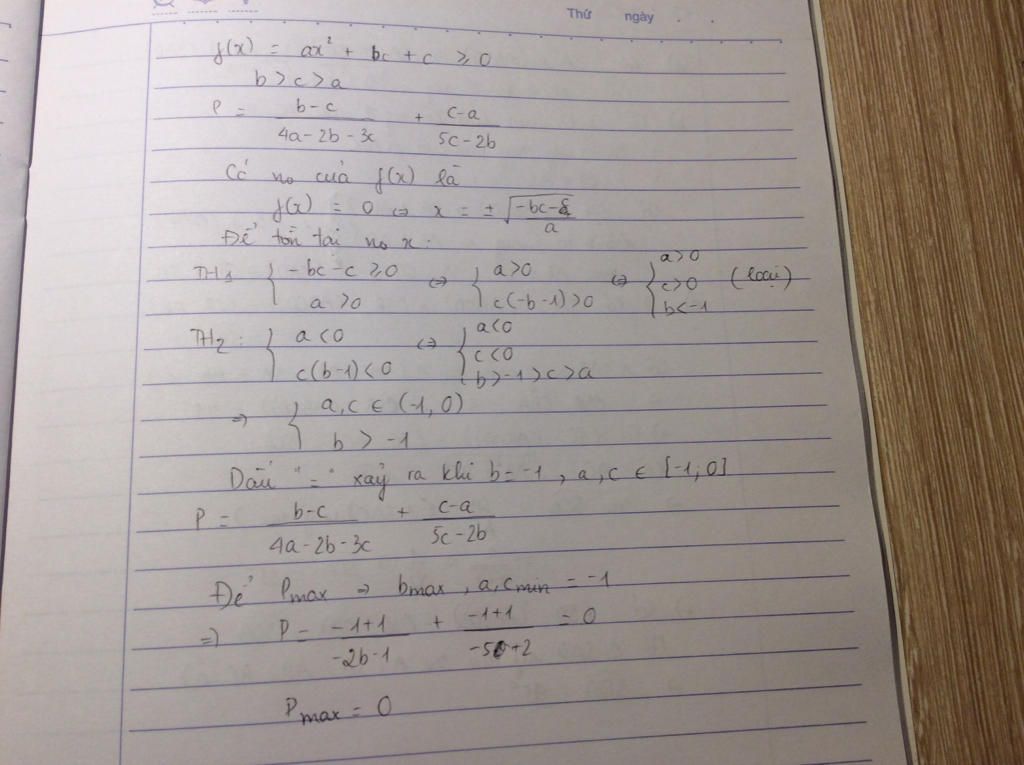 Thứ ngày . .
f(x) = ax² + bc + c ≥ 0
b > c > a
P = (b-c)/(4a-2b-3c) + (c-a)/(5c-2b)
Có no của f(x) là
f(x) = 0 ⇔ x = ±√((-bc-c)/a)
Để tồn tại no x.
TH1 { -bc-c ≥ 0 ; a > 0 ⇔ { a > 0 ; c(-b-1) > 0 ⇔ { a > 0 ; c > 0 ; b < -1 (loại)
TH2: { a < 0 ; c(b-1) < 0 ⇔ { a < 0 ; c < 0 ; b > -1 > c > a
⇒ { a, c ∈ (-1, 0) ; b > -1
Dấu "=" xảy ra khi b = -1, a, c ∈ [-1; 0]
P = (b-c)/(4a-2b-3c) + (c-a)/(5c-2b)
Để Pmax ⇒ bmax, a, cmin = -1
⇒ P = (-1+1)/(-2b-1) + (-1+1)/(-5+2) = 0
Pmax = 0